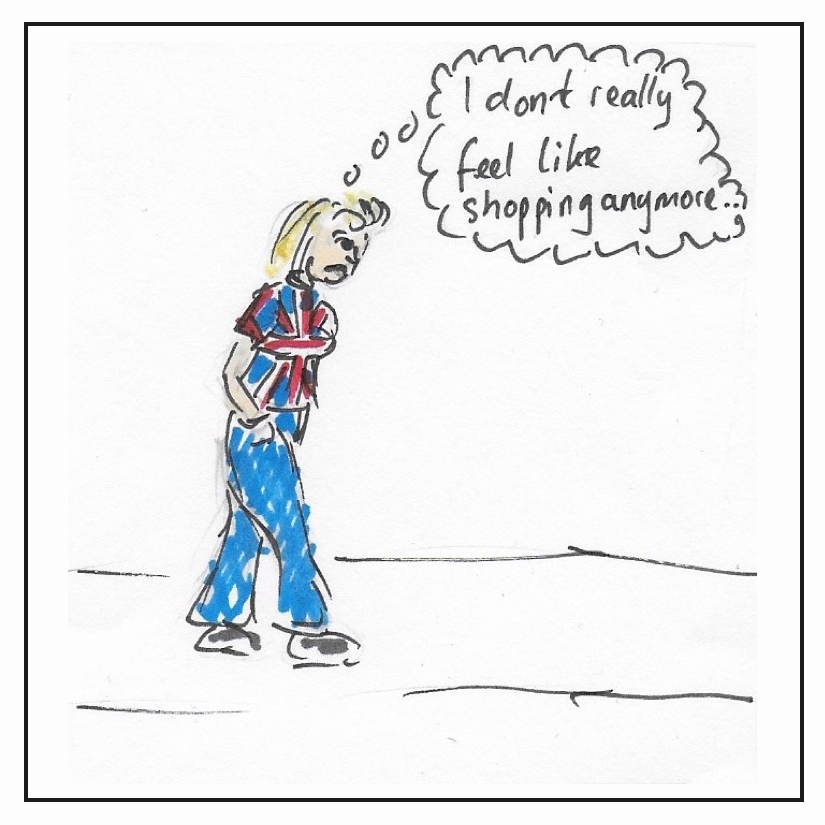 I dont really
feel like
shopping anymore...